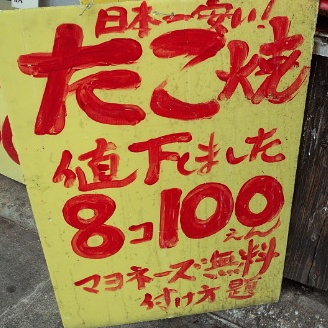 日本一安い!
たこ焼
値下しました
8コ100えん
マヨネーズ無料
付け方題